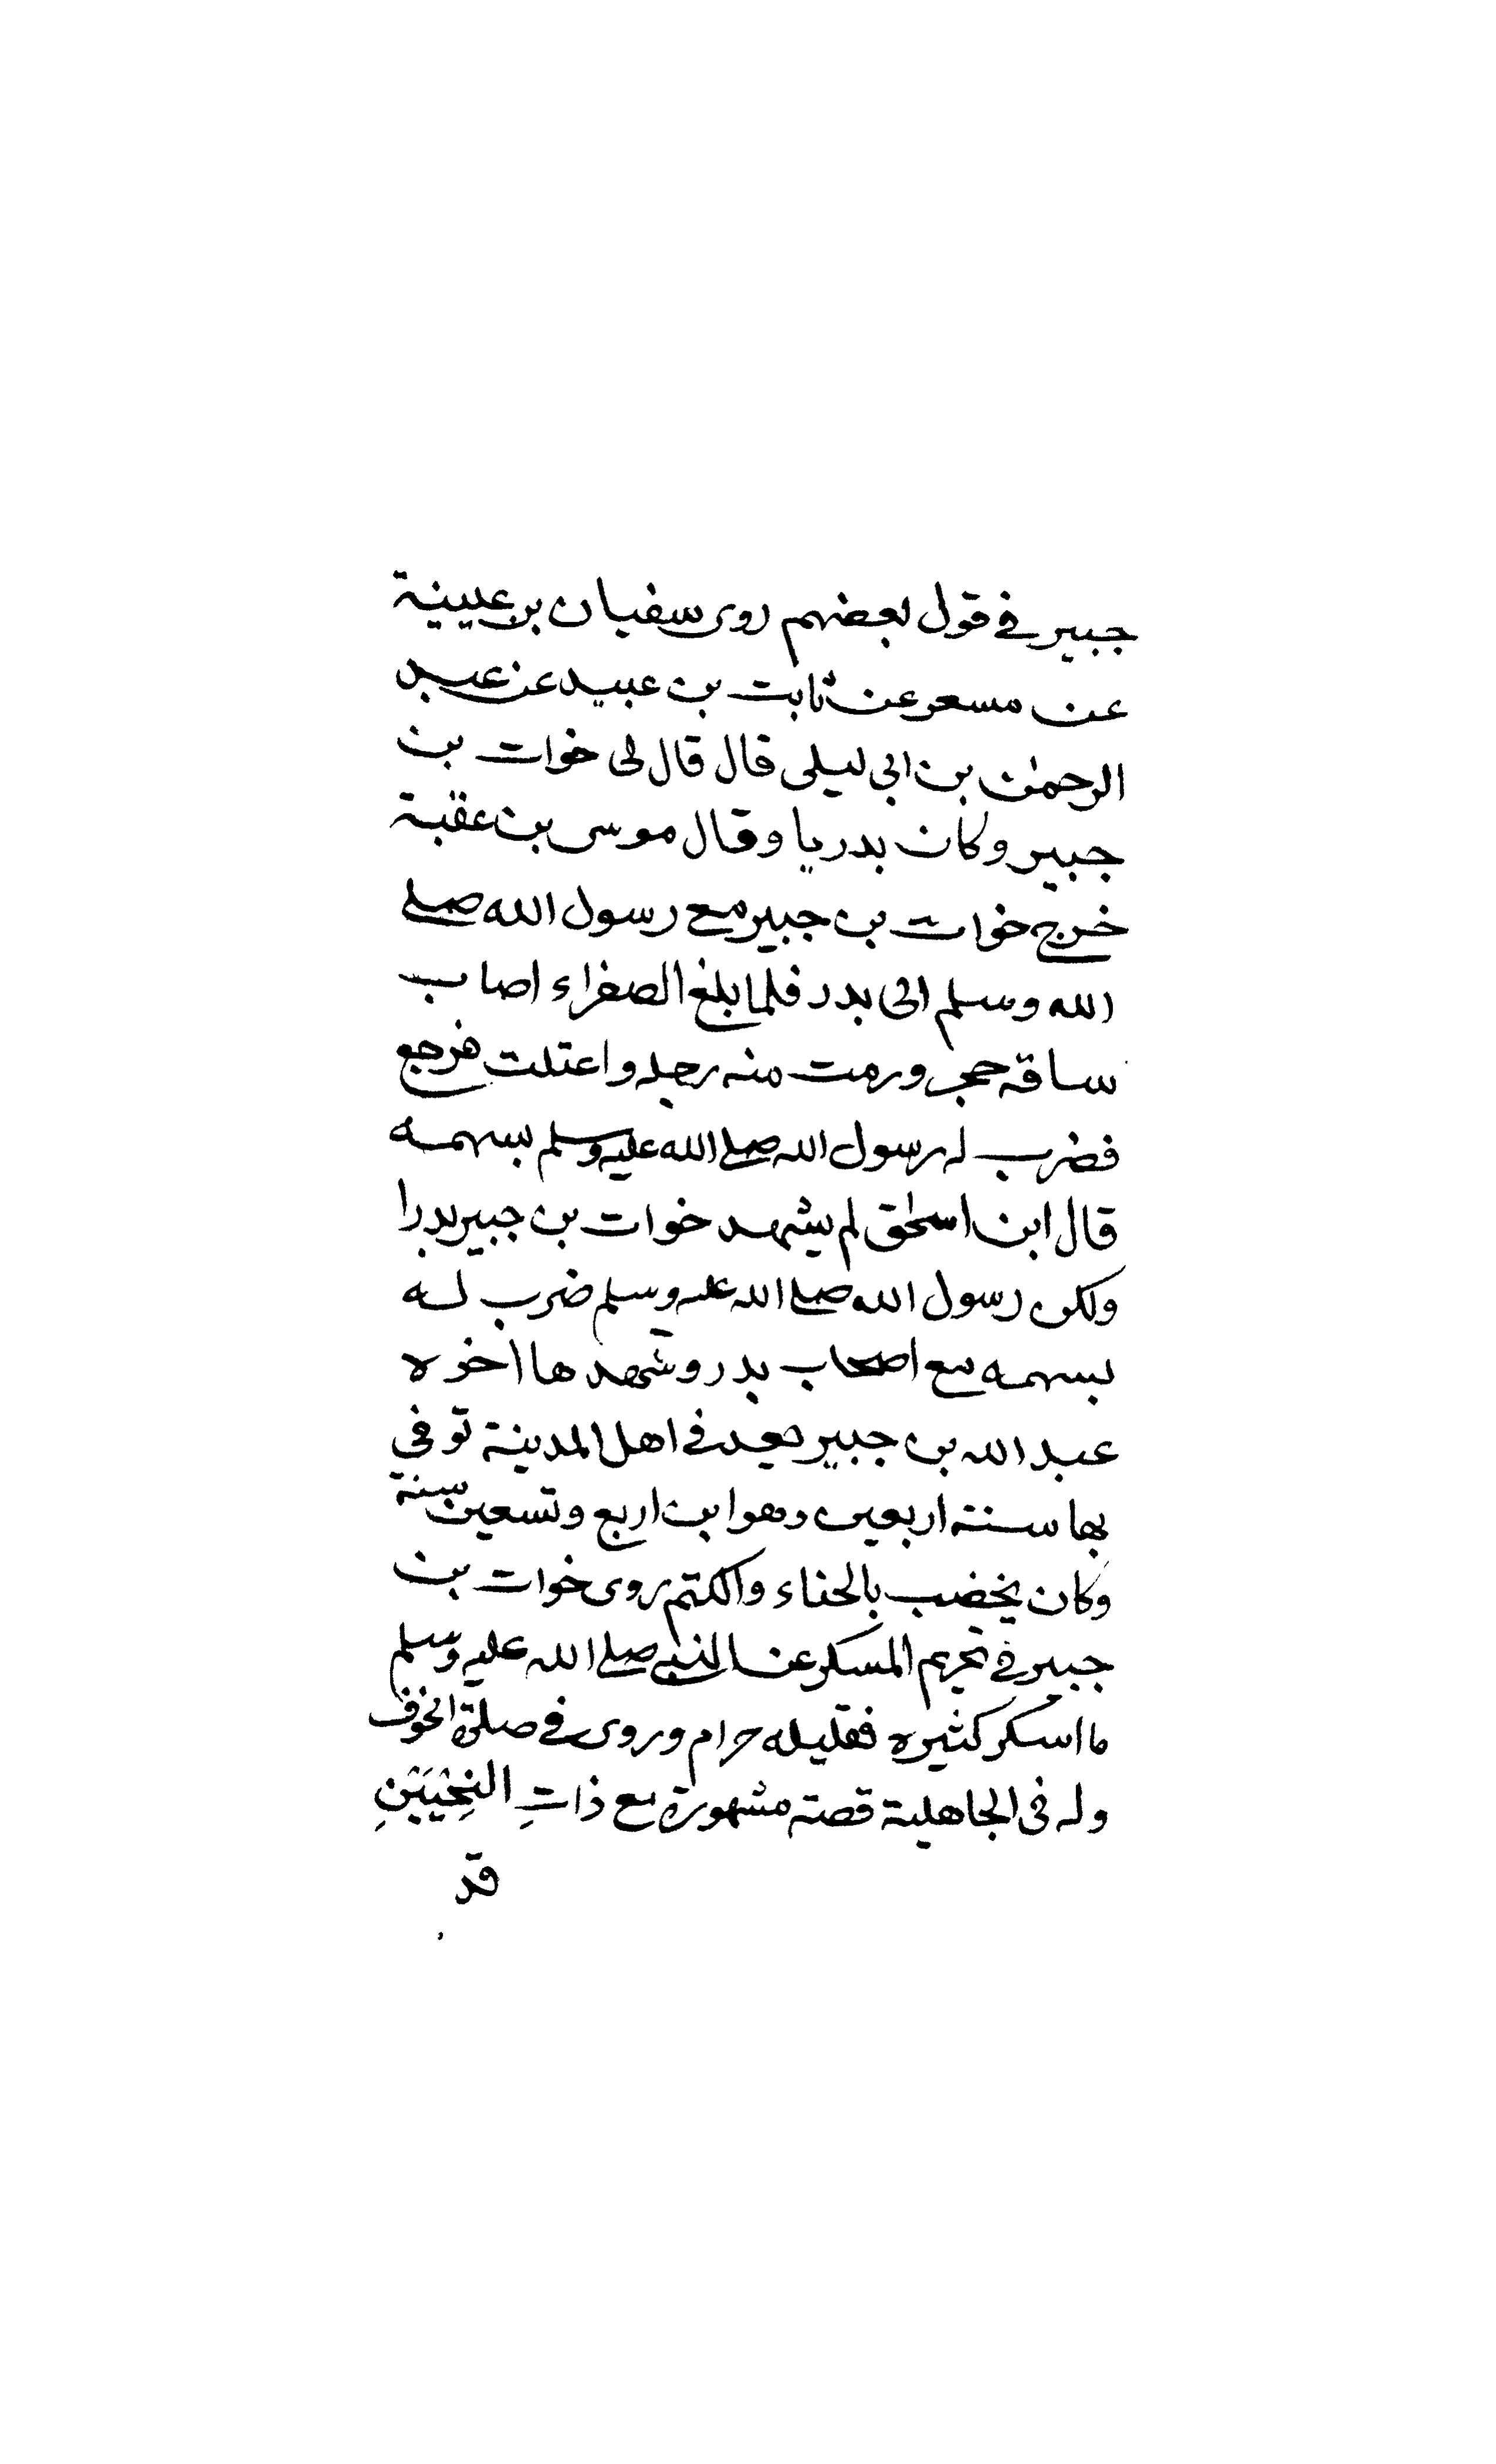 جبير في قول بعضهم روى سفيان بن عيينة
عن مسعر عن ثابت بن عبيد عن عبد
الرحمن بن ابى ليلى قال قال لى خوات بن
جبير وكان بدريا وقال موسى بن عقبة
خرج خوات بن جبير مع رسول الله صلى
الله وسلم الى بدر فلما بلغ الصفراء اصاب
ساقه حجر ورمت منه رجله واعتلت فرجع
فضرب له رسول الله صلى الله عليه وسلم بسهمه
قال ابن اسحق لم يشهد خوات بن جبير بدرا
ولكن رسول الله صلى الله عليه وسلم ضرب له
بسهمه مع اصحاب بدر وشهدها اخوه
عبد الله بن جبير يعد في اهل المدينة توفي
بها سنة اربعين وهو ابن اربع وتسعين سنة
وكان يخضب بالحناء والكتم روى خوات بن
جبير في تحريم المسكر عن النبي صلى الله عليه وسلم
ما اسكر كثيره فقليله حرام وروى في صلوة الخوف
وله فى الجاهلية قصة مشهورة مع ذاتِ النِحْيَيْنِ
قد